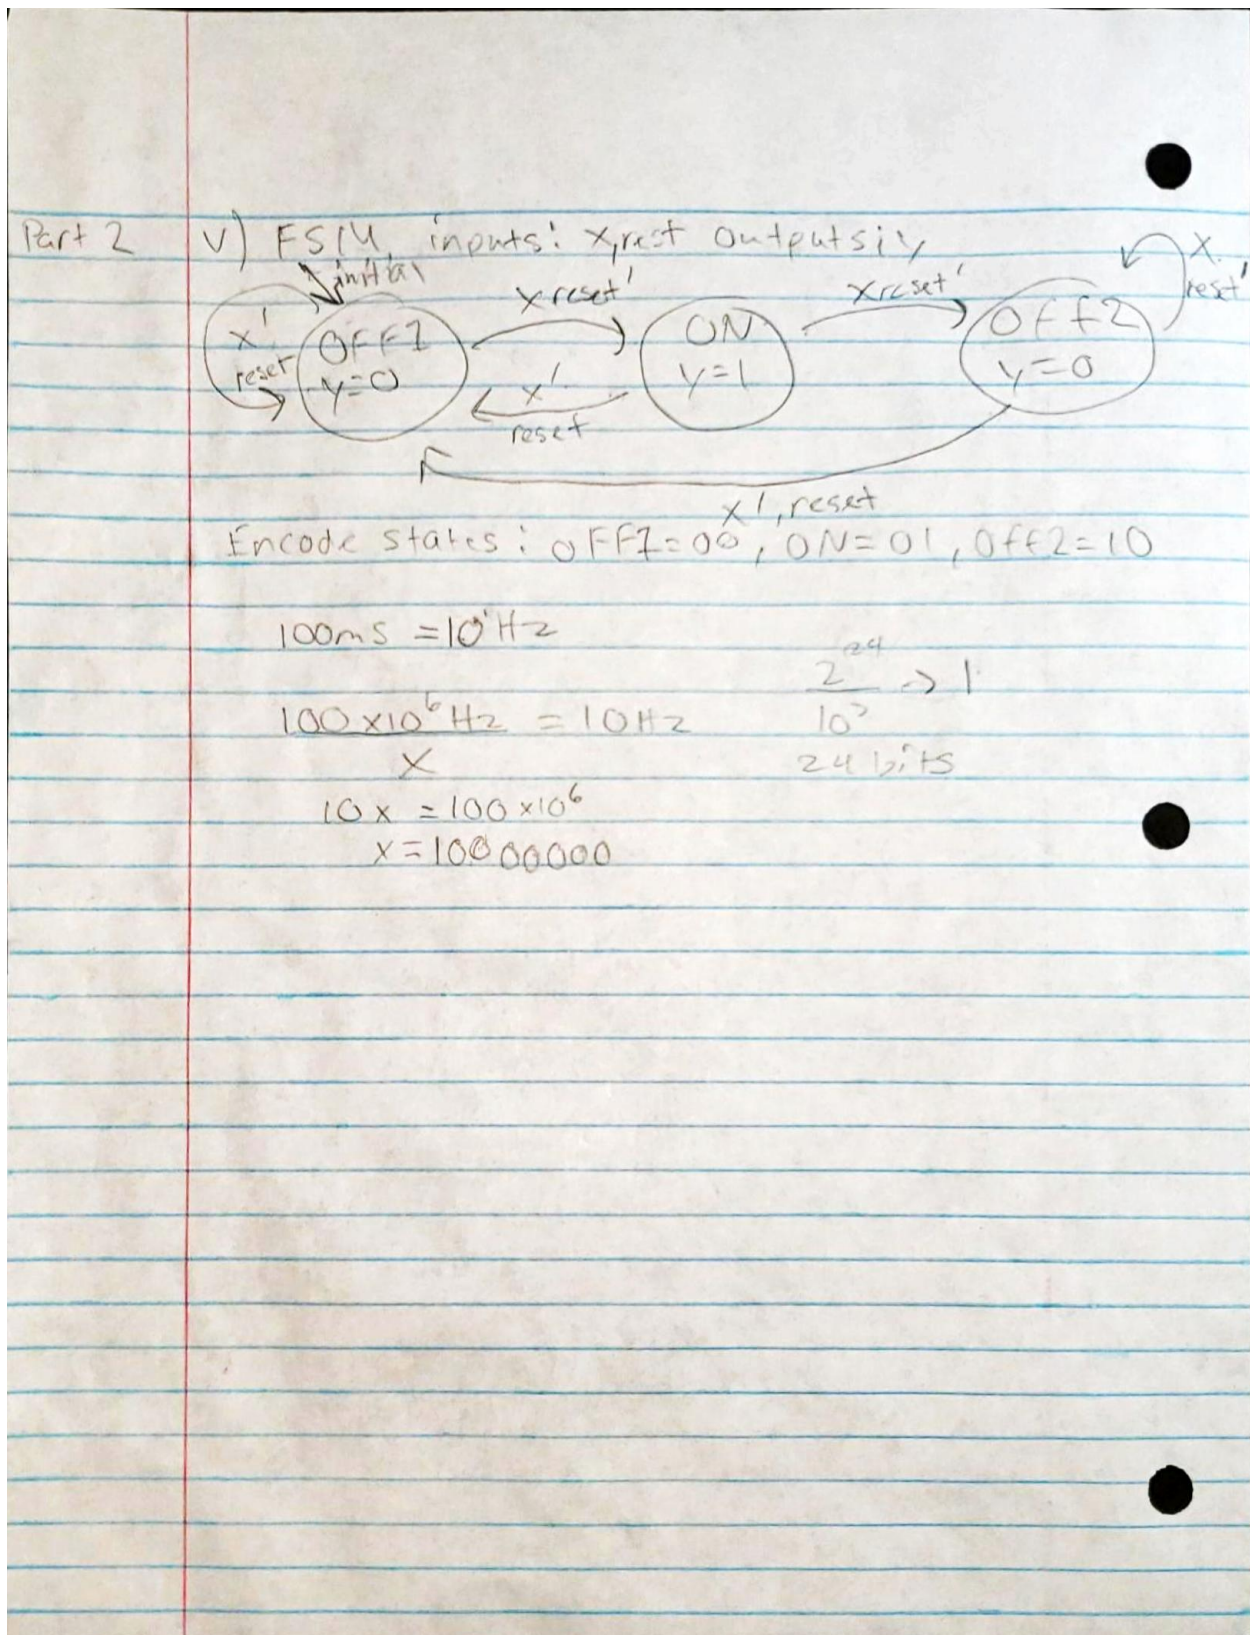 Part 2 v) FSM inputs: x, rest outputs: y
initial
x' reset
OFF1 y=0
x reset'
x' reset
ON y=1
x reset'
Off2 y=0
x reset'
x', reset
Encode states: OFF1=00, ON=01, Off2=10
100ms = 10' Hz
100 x10^6 Hz / x = 10 Hz
10x = 100 x10^6
x = 10000000
2^24 / 10^7 -> 1
24 bits